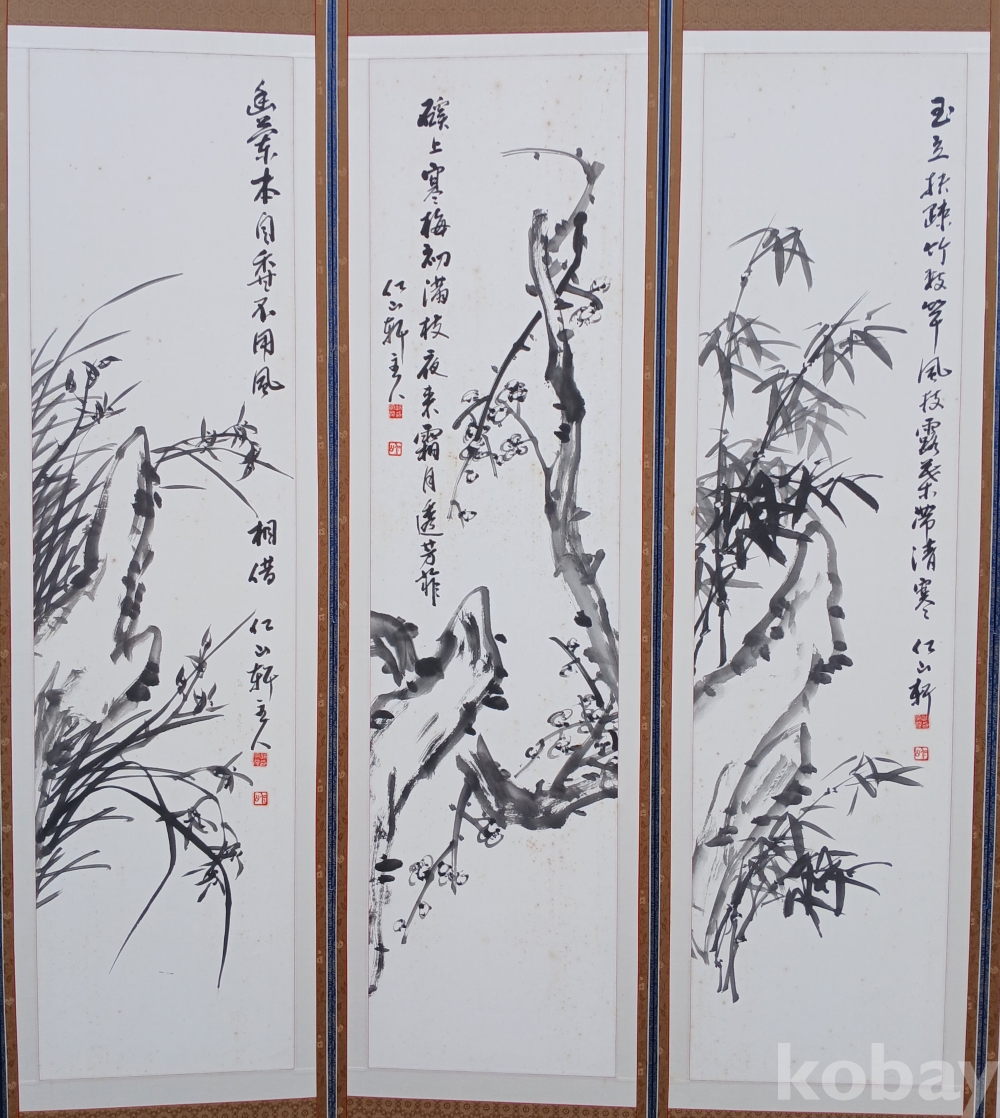 玉立扶疎竹數竿風枝露葉帶清寒 仁山軒
磎上寒梅初滿枝夜来霜月透芳菲
仁山軒主人
幽蘭本自香不用風
相借 仁山軒主人
kobay